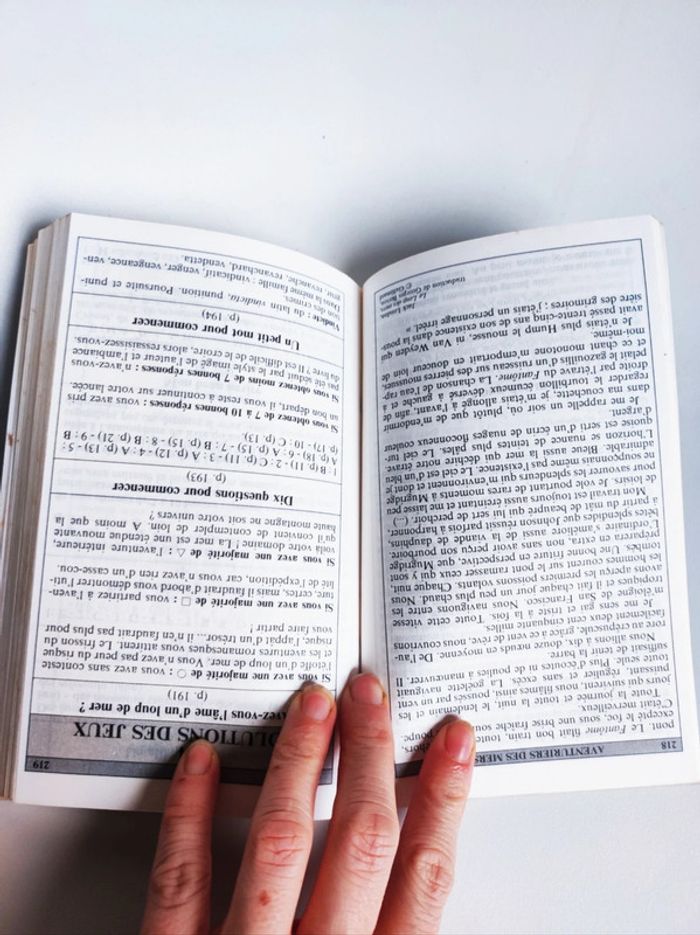 218
AVENTURIERS DES MERS
pont. Le Fantôme filait bon train, toute
excepté le foc, sous une brise fraîche
C'était merveilleux.
Toute la journée et toute la nuit, le lendemain et les
jours qui suivirent, nous filâmes ainsi, poussés par un vent
puissant, régulier et sans excès. La goélette naviguait
toute seule. Plus d'écoutes ni de poulies à manœuvrer. Il
suffisait de tenir la barre.
Nous allions à dix, douze nœuds en moyenne. De l'au-
rore au crépuscule, grâce à ce vent de rêve, nous couvrions
facilement deux cent cinquante milles.
Je me sens gai et triste à la fois. Toute cette vitesse
m'éloigne de San Francisco. Nous naviguons entre les
tropiques et il fait chaque jour un peu plus chaud. Nous
avons aperçu les premiers poissons volants. Chaque nuit,
les hommes courent sur le pont ramasser ceux qui y sont
tombés. Une bonne friture en perspective, que Mugridge
préparera en extra, non sans avoir perçu son pourboire.
L'ordinaire s'améliore aussi de la viande de dauphins,
bêtes splendides que Johnson réussit parfois à harponner,
à partir du mât de beaupré qui lui sert de perchoir. (...)
Mon travail est toujours aussi éreintant et me laisse peu
de loisirs. Je vole pourtant de rares moments à Mugridge
pour savourer les splendeurs qui m'environnent et dont je
ne soupçonnais même pas l'existence. Le ciel est d'un bleu
admirable. Bleue aussi la mer qui déchire notre étrave.
L'horizon se nuance de teintes plus pâles. Le ciel tur-
quoise est serti d'un écrin de nuages floconneux couleur
d'argent.
Je me rappelle un soir où, plutôt que de m'endormir
dans ma couchette, je m'étais allongé à l'avant, afin de
regarder le tourbillon écumeux déversé à gauche et à
droite par l'étrave du Fantôme. La chanson de l'eau rap-
pelait le gazouillis d'un ruisseau sur des pierres moussues
et ce chant monotone m'emportait en douceur loin de
moi-même.
Je n'étais plus Hump le mousse, ni Van Weyden qui
avait passé trente-cinq ans de son existence dans la pous-
sière des grimoires ; j'étais un personnage irréel. »
Jack London,
Le Loup des mers,
traduction de Georges Berton,
© Gallimard
219
SOLUTIONS DES JEUX
Avez-vous l'âme d'un loup de mer ?
(p. 191)
Si vous avez une majorité de ○ : vous avez sans conteste
l'étoffe d'un loup de mer. Vous n'avez pas peur du risque
et les aventures romanesques vous attirent. Le frisson du
risque, l'appât d'un trésor... il n'en faudrait pas plus pour
vous faire partir !
Si vous avez une majorité de □ : vous partiriez à l'aven-
ture, certes, mais il faudrait d'abord vous démontrer l'uti-
lité de l'expédition, car vous n'avez rien d'un casse-cou.
Si vous avez une majorité de △ : l'aventure intérieure,
voilà votre domaine ! La mer est une étendue mouvante
qu'il convient de contempler de loin. A moins que la
haute montagne ne soit votre univers ?
Dix questions pour commencer
(p. 193)
1 : B (p. 11) - 2 : C (p. 11) - 3 : A (p. 12) - 4 : A (p. 13) - 5 :
A (p. 18) - 6 : A (p. 15) - 7 : B (p. 15) - 8 : B (p. 21) - 9 : B
(p. 17) - 10 : C (p. 13).
Si vous obtenez de 7 à 10 bonnes réponses : vous avez pris
un bon départ, il vous reste à continuer sur votre lancée.
Si vous obtenez moins de 7 bonnes réponses : n'avez-vous
pas été séduit par le style imagé de l'auteur et l'ambiance
du livre ? Il est difficile de le croire, alors ressaisissez-vous.
Un petit mot pour commencer
(p. 194)
Vindicte : du latin vindicta, punition. Poursuite et puni-
tion des crimes.
Dans la même famille : vindicatif, venger, vengeance, ven-
geur, revanche, revanchard, vendetta.